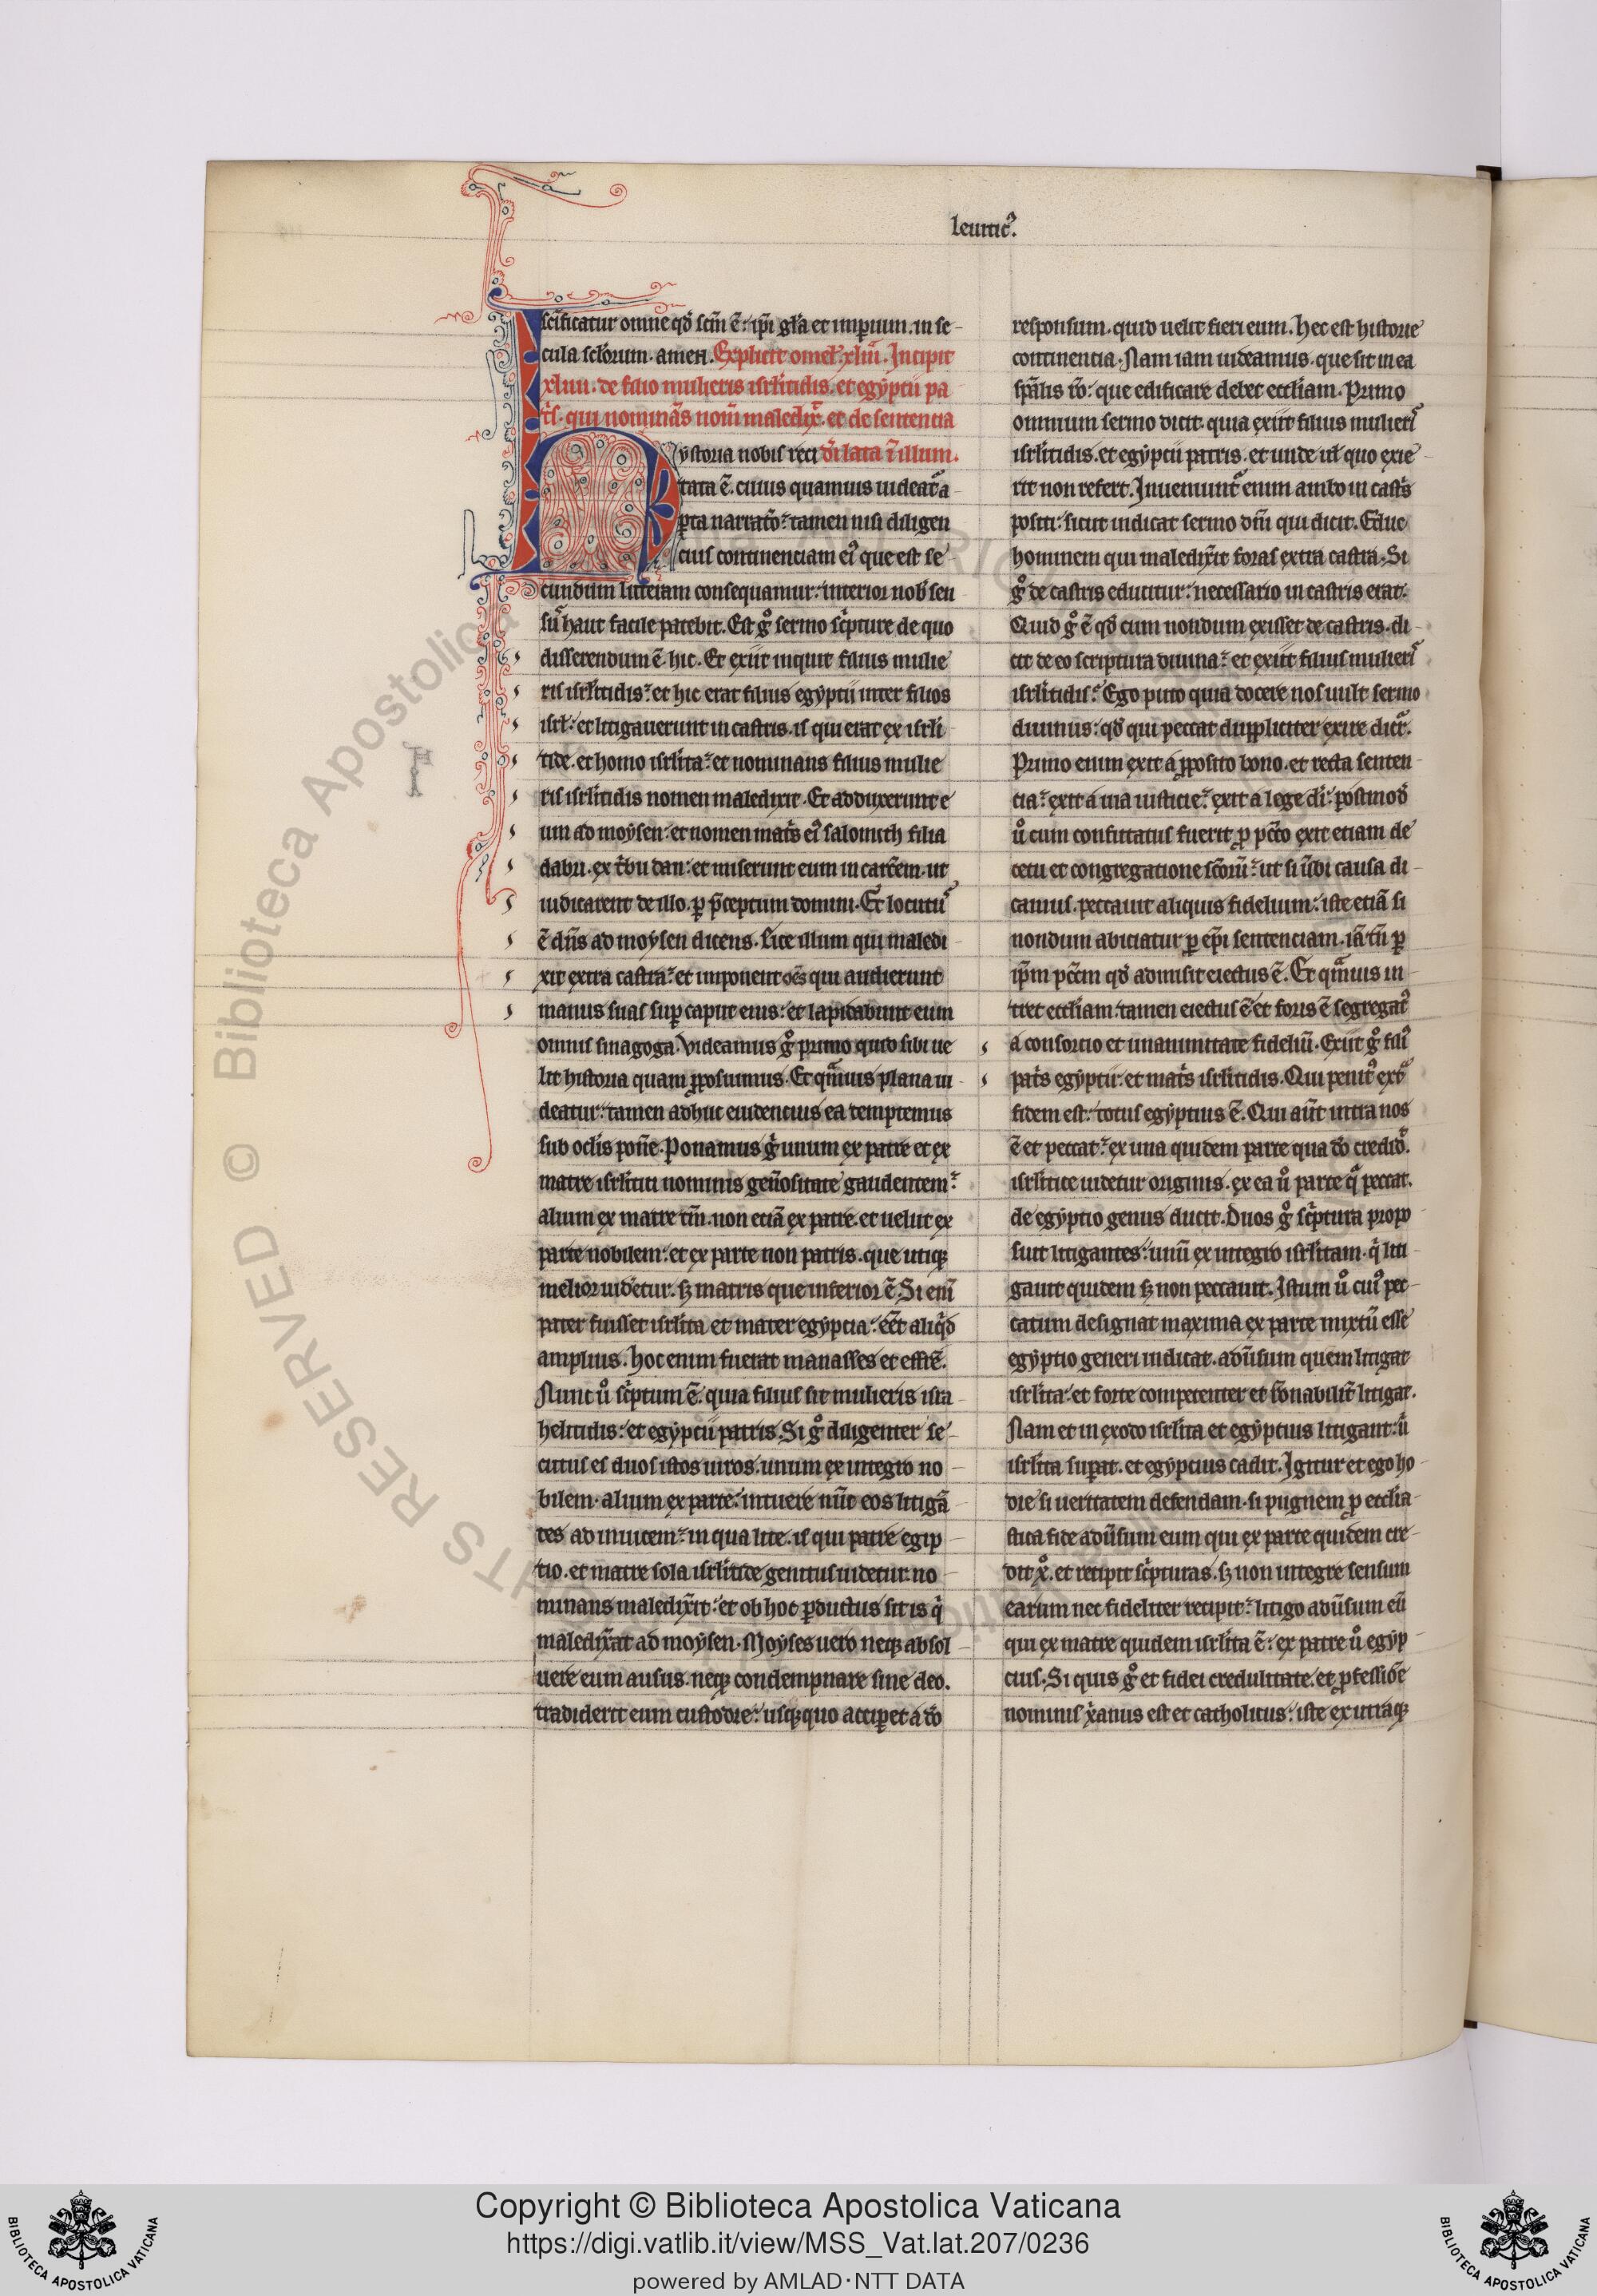 leuitic᷒.
sc̄ificatur omne qd̓ scm̄ ē: ip̄i gl̄a et imperium. in se-
cula sc̄lorum. amen. Explicit omel̓. xliii. Incipit
xliiii. de filio mulieris isrl̓itidis. et egyptii pa
t̓s. qui nominās nom̄ maledix̄. et de sententia
ystoria nobis reci di̓ lata ī illum.
tata ē. cuius quamuis uideat᷑ a
ꝑta narratio: tamen nisi diligen
cius continenciam ei᷒ que est se-
cundum litteram consequamur: interior nob̓ sen
su᷒ haut facile patebit. Est gͦ sermo sc̓pture de quo
disserendum ē. hic. Et exiit inquit filius mulie
ris isrl̓itidis: et hic erat filius egyptii inter filios
isrl̓: et litigauerunt in castris. is qui erat ex isrl̓i
tide. et homo isrl̓ita: et nominans filius mulie
ris isrl̓itidis nomen maledixit. Et adduxerunt e
um ad moysen: et nomen mat̓s ei᷒ salomith filia
dabri. ex t̓bu dan: et miserunt eum in carc̓em. ut
iudicarent de illo. ꝑ p̄ceptum domini. Et locutu᷒
ē dn̄s ad moysen dicens. Eice illum qui maledi
xit extra castra: et imponent oēs qui audierunt
manus suas suꝑ caput eius: et lapidabunt eum
omnis sinagoga. Videamus gͦ primo quid sibi ue
lit historia quam ꝓposuimus. Et qͣmuis plana ui
deatur: tamen adhuc euidencius ea temptemus
sub oclis pon̄e. Ponamus gͦ unum ex patre et ex
matre isrl̓itici nominis gen̓ositate gaudentem:
alium ex matre tm̄. non etiā ex patre. et uelut ex
parte nobilem: et ex parte non patris. que utiqꝫ
melior uidetur. sꝫ matris que inferior ē. Si eni᷒
pater fuisset isrl̓ita et mater egyptia: eēt aliqͥd
amplius. hoc enim fuerat manasses et effrē.
Nunc u̓ͦ sc̓ptum ē. quia filius sit mulieris isra
helitidis: et egyptii patris. Si gͦ diligenter se-
cutus es duos istos uiros. unum ex integro no
bilem. alium ex parte: intuere nūc eos litigā
tes ad inuicem: in qua lite. is qui patre egip
tio. et matre sola isrl̓itide genitus uidetur. no
minans maledix̓it: et ob hoc ꝑductus sit is qͥ
maledix̓at ad moysen. Moyses uero neqꝫ absol
uere eum ausus. neqꝫ condempnare sine deo.
tradiderit eum custodie: usqꝫ quo acciꝑet a do̓
responsum. quid uelit fieri eum. Hec est historie
continentia. Nam iam uideamus. que sit in ea
sp̄alis ro̓: que edificare debet eccl̓iam. Primo
omnium sermo dicit. quia exiit filius mulieri᷒
isrl̓itidis. et egyptii patris. et unde ul̓ quo exie
rit non refert. Inueniunt᷑ enim ambo in cast̓s
positi: sicut indicat sermo dn̄i qui dicit. Educ
hominem qui maledix̓it foras extra castra. Si
gͦ de castris educitur: necessario in castris erat.
Quid gͦ ē qd̓ cum nondum exisset de castris. di-
cit de eo scriptura diuina: et exiit filius mulieri᷒
isrl̓itidis: Ego puto quia docere nos uult sermo
diuinus: qd̓ qui peccat duppliciter exire dicit᷑.
Primo enim exit a ꝓposito bono. et recta senten-
cia: exit a uia iusticie: exit a lege di̓: postmod̓
u̓ͦ cum confutatus fuerit ꝓ pc̄to exit etiam de
cetu et congregatione sc̄orū: ut si u̓bi causa di-
camus. peccauit aliquis fidelium: iste etiā si
nondum abiciatur ꝑ ep̄i sentenciam. iā tn̄ ꝑ
ip̄m pc̄cm qd̓ admisit eiectus ē. Et qͣmuis in-
tret eccl̓iam: tamen eiectus ē et foris ē segregat᷒
a consorcio et unanimitate fideliū. Exiit gͦ fili᷒
pat̓s egyptii: et mat̓s isrl̓itidis. Qui penit᷒ ext̓ͣ
fidem est: totus egyptius ē. Qui aūt intra nos
ē et peccat: ex una quidem parte qua do̓ credid̓t.
isrl̓itice uidetur originis. ex ea u̓ͦ parte qͣ peccat.
de egyptio genus ducit. Duos gͦ sc̓ptura propo
suit litigantes: unū ex integro isrl̓itam. qͥ liti-
gauit quidem sꝫ non peccauit. Istum u̓ͦ cui᷒ pec-
catum designat maxima ex parte mixtū esse
egyptio generi indicat. adu̓sum quem litigat
isrl̓ita: et forte competenter et ro̓nabilit̓ litigat.
Nam et in exodo isrl̓ita et egyptius litigant: u̓
isrl̓ita suꝑat. et egyptius cadit. Igitur et ego ho-
die si ueritatem defendam. si pugnem ꝓ eccl̓ia-
stica fide adu̓sum eum qui ex parte quidem cre-
dit xͦ. et recipit sc̓pturas. sꝫ non integre sensum
earum nec fideliter recipit: litigo adu̓sum eū
qui ex matre quidem isrl̓ita ē: ex patre u̓ͦ egyp-
cius. Si quis gͦ et fidei credulitate. et ꝓfessiōe
nominis x̓anus est et catholicus: iste ex utraqꝫ
Copyright © Biblioteca Apostolica Vaticana
https://digi.vatlib.it/view/MSS_Vat.lat.207/0236
powered by AMLAD·NTT DATA
BIBLIOTECA APOSTOLICA VATICANA
BIBLIOTECA APOSTOLICA VATICANA